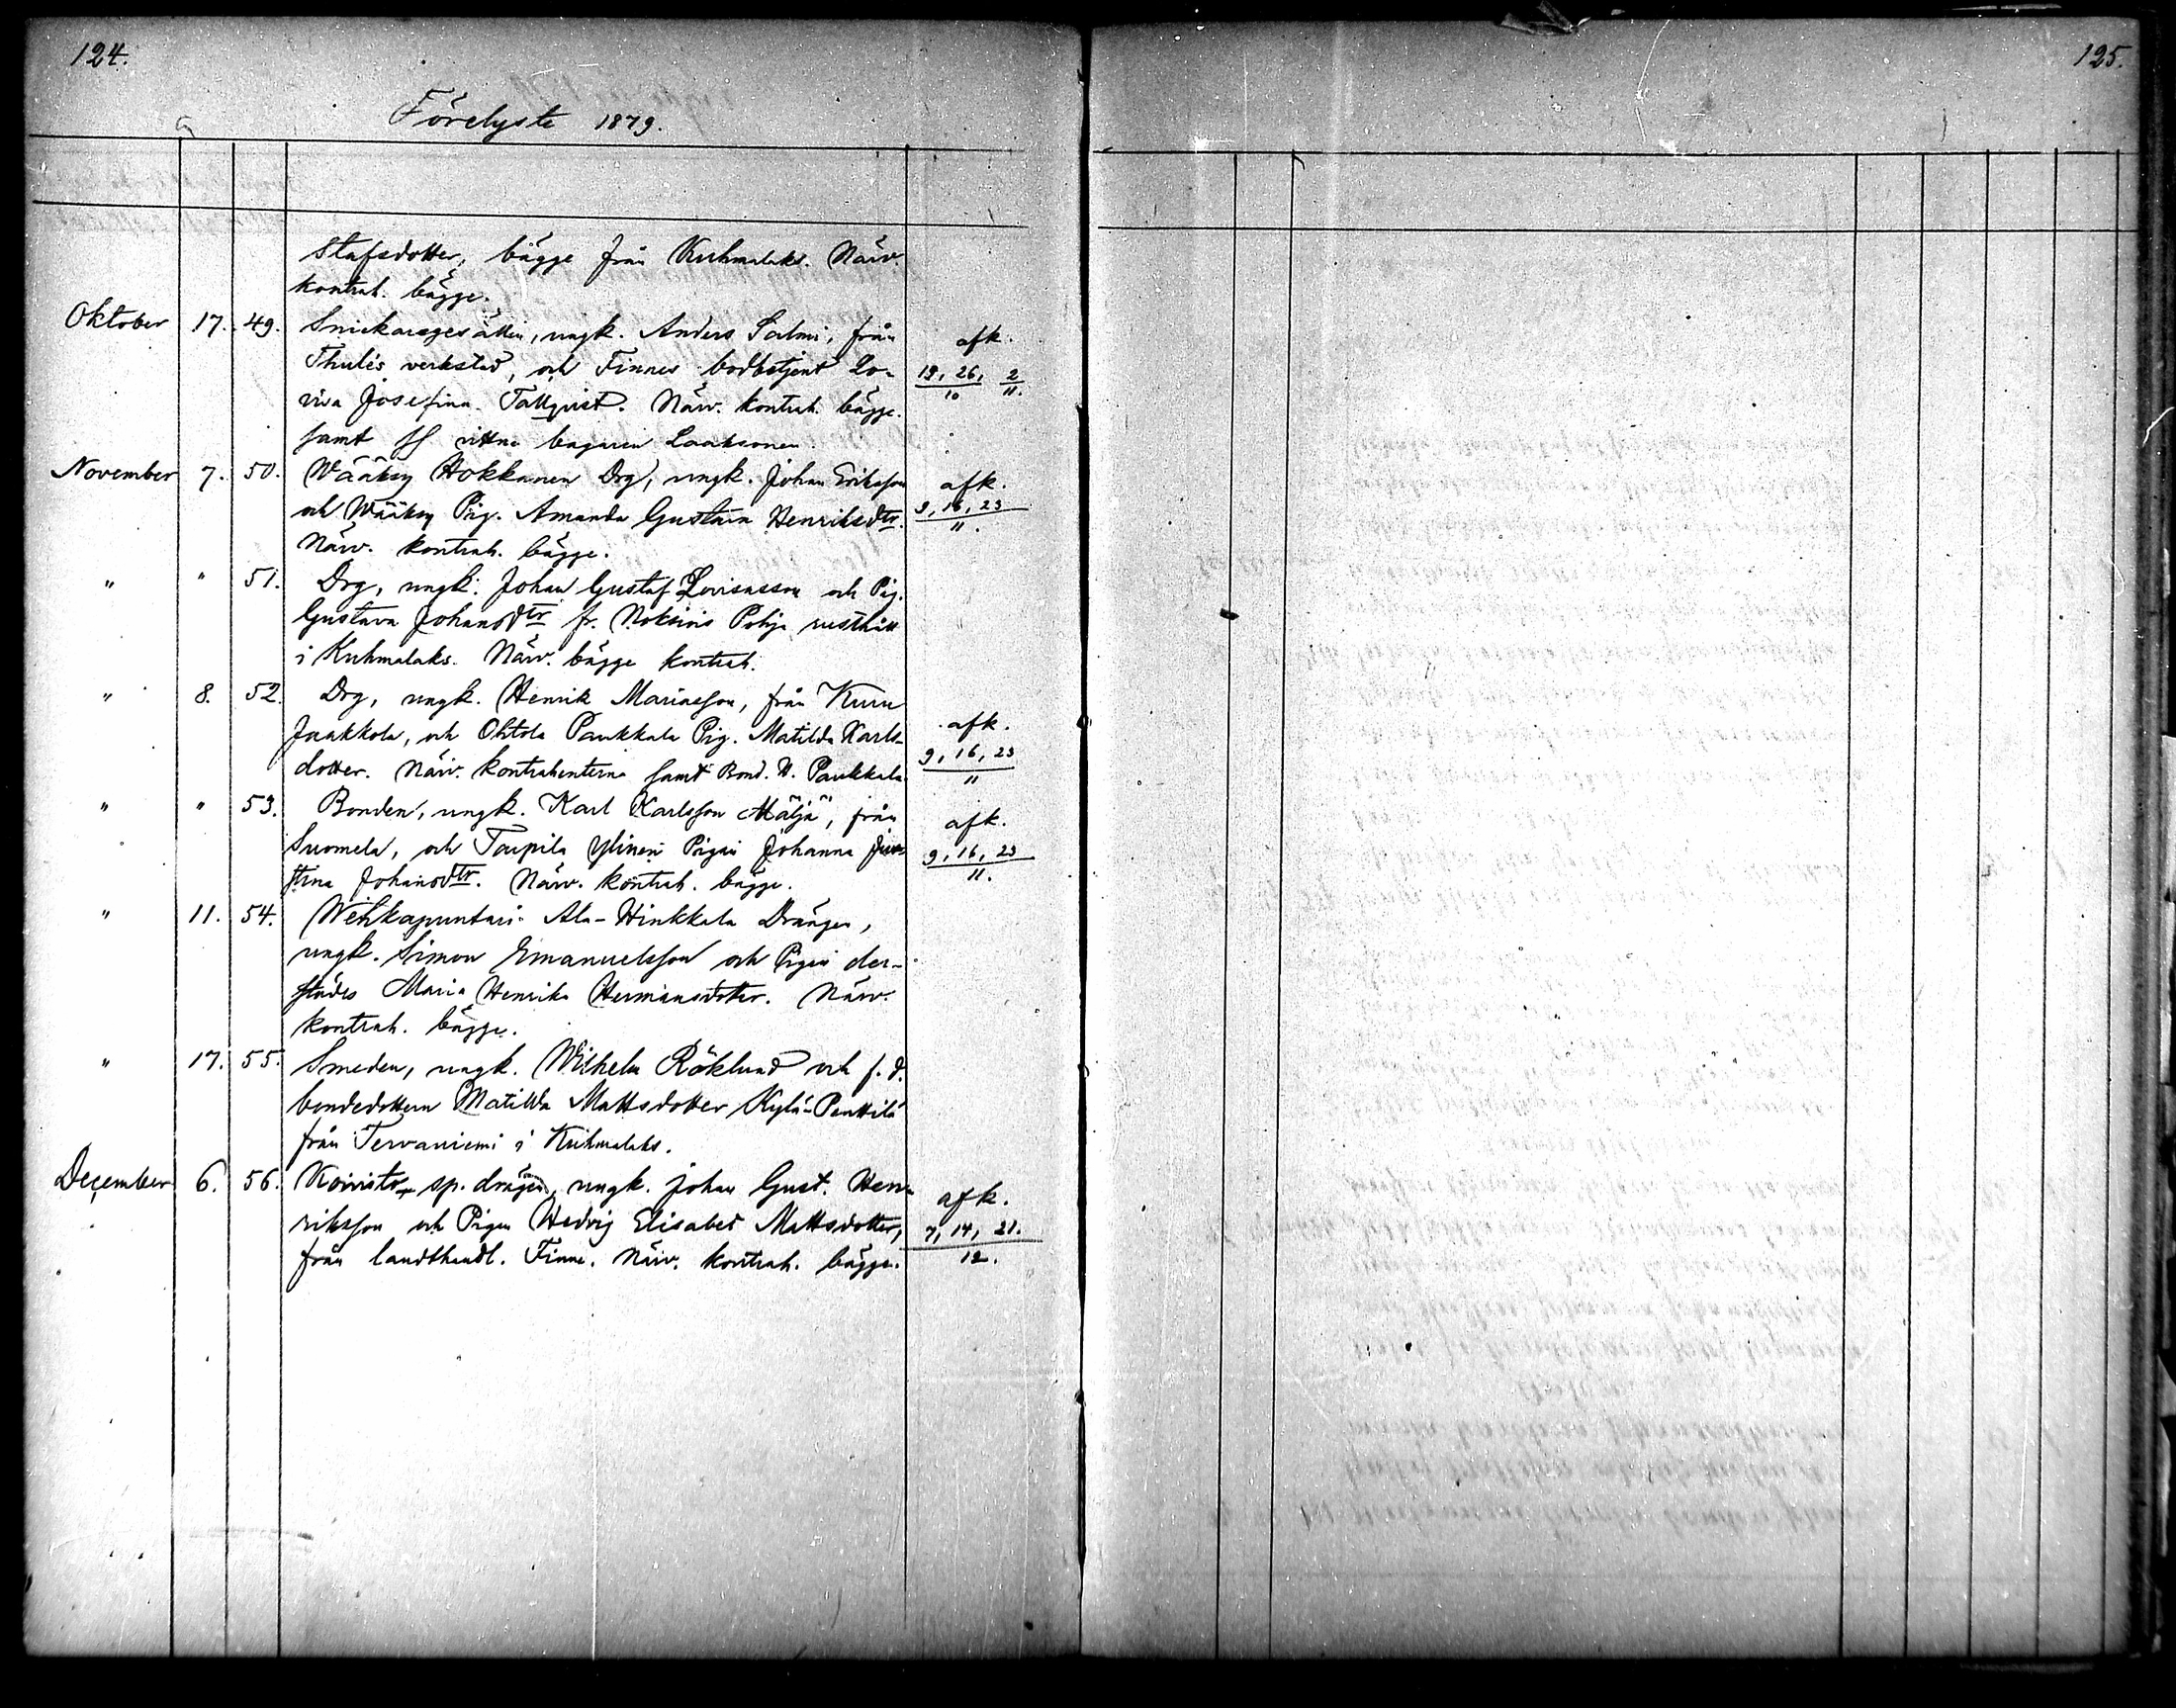 124.
125.
Förelyste 1879.
stafsdotter, bägge från Kuhmalaks. Närv.
kontrah. bägge.
Oktober 17. 49. Snickaregesällen, ungk. Anders Salmi, från afk.
Thulés verkstad, och Finnes bodbetjent Lo- 19, 26, 2
visa Josefina Tallqvist. Närv. kontrah. bägge. 10 11.
samt ss vittne bagaren Laaksonen.
November 7. 50. Wääksy Hokkanen Drg, ungk. Johan Eriksson afk.
och Wääksy Pig. Amanda Gustava Henriksdtr. 9, 16, 23
Närv. kontrah. bägge. 11.
" " 51. Drg, ungk. Johan Gustaf Lovisasson och Pig.
Gustava Johansdtr fr. Pohja rusthåll
i Kuhmalaks. Närv. bägge kontrah.
" 8. 52. Drg, ungk. Henrik Mariasson, från Kuru
Jaakkola, och Ohtola Paukkala Pig. Matilda Karls- afk.
dotter. Närv. kontrahenterna samt Bond. H. Paukkala 9, 16, 23
11
" " 53. Bonden, ungk. Karl Karlsson Mäljä, från afk.
Suomela, och Taupila Ylinen Pigan Johanna Ju- 9, 16, 23
stina Johansdtr. Närv. kontrah. bägge. 11.
" 11. 54. Wehkapuntari Ala-Hinkkala Drängen,
ungk. Simon Emanuelsson och Pigan der-
städes Maria Henrika Hermansdotter. Närv.
kontrah. bägge.
" 17. 55. Smeden, ungk. Wilhelm Röklund och f. d.
bondedottern Matilda Mattsdotter Kylä-Panttila
från Tervaniemi i Kuhmalaks.
December 6. 56. Koivisto sp. drängen, ungk. Johan Gust. Hen- afk.
riksson och Pigan Hedvig Elisabet Mattsdotter, 7, 14, 21.
från landthandl. Finne. Närv. kontrah. bägge. 12.